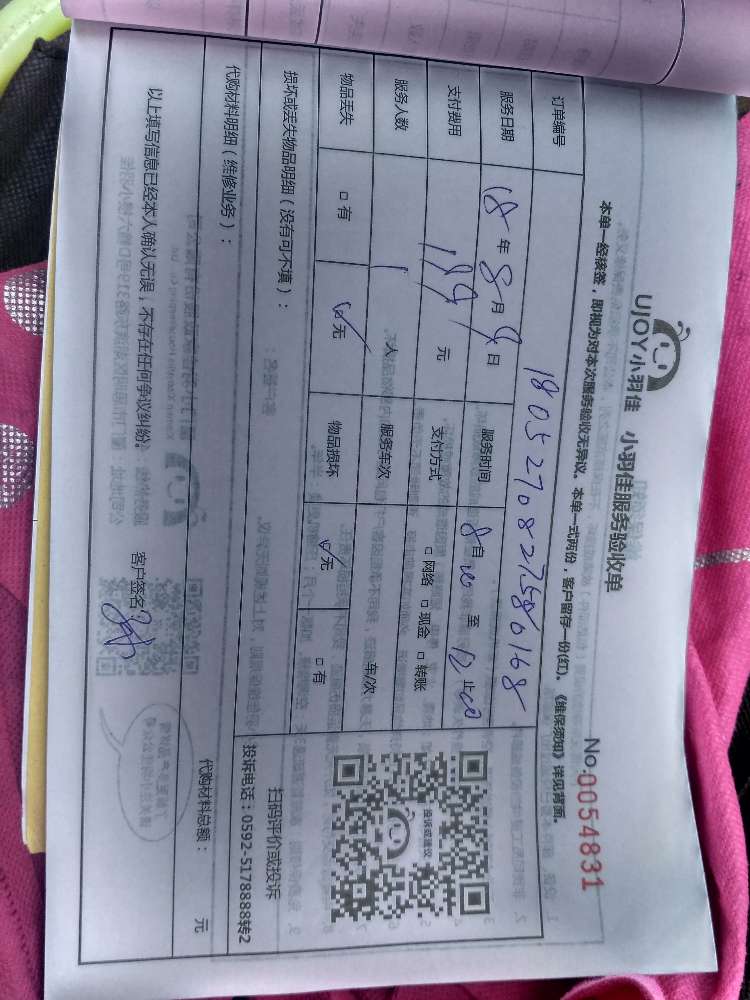 UJOY小羽佳 小羽佳服务验收单
No.0054831
本单一经核签，即视为对本次服务验收无异议。本单一式两份，客户留存一份(红)。《维保须知》详见背面。
订单编号 1805270827586168
服务日期 18 年 8 月 9 日 服务时间 8自00 至 12止00
支付费用 189 元 支付方式 □ 网络 □ 现金 □ 转账
服务人数 1 人 服务车次 车/次
物品丢失 □ 有 ☑ 无 物品损坏 ☑ 无 □ 有
投诉或建议
扫码评价或投诉
投诉电话：0592-5178888转2
损坏或丢失物品明细（没有可不填）：
代购材料明细（维修业务）：
代购材料总额： 元
以上填写信息已经本人确认无误，不存在任何争议纠纷。 客户签名：